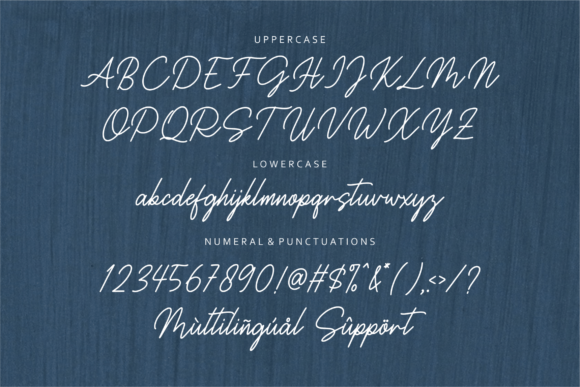 UPPERCASE
ABCDEFGHIJKLMN
OPQRSTUVWXYZ
LOWERCASE
abcdefghijklmnopqrstuvwxyz
NUMERAL & PUNCTUATIONS
1234567890!@#$%^&*(),.<>/?
Mùltilíñgúål Sûppört